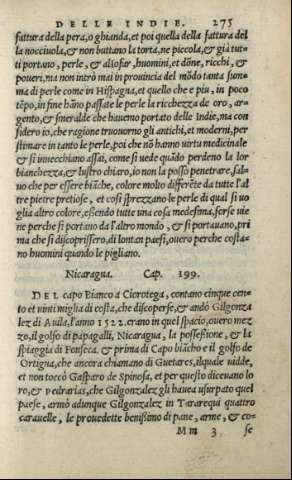 DELLE INDIE. 275
fattura della pera, o ghianda, et poi quella della fattura del
la nocciuola, & non buttano la torta, ne piccola, & già tut-
ti portano, perle, & aliofar, huomini, et dõne, ricchi, &
poueri, ma non intrò mai in prouincia del mõdo tanta sum-
ma di perle come in Hispagna, et quello che e piu, in poco
tẽpo, in fine hãno passate le perle la ricchezza de oro, ar-
gento, & smeralde che hauemo portato delle Indie, ma con
sidero io, che ragione trouorno gli antichi, et moderni, per
stimare in tanto le perle, poi che nõ hanno uirtu medicinale
& si inuecchiano assai, come si uede quãdo perdeno la lor
bianchezza, & lustro chiaro, io non la posso penetrare, sal-
uo che per essere biãche, colore molto differẽte da tutte l'al
tre pietre pretiose, et cosi sprezzano le perle di qual si uo
glia altro colore, essendo tutte una cosa medesima, forse uie
ne perche si portano da l'altro mondo, & si portauano, pri
ma che si discoprissero, di lontan paesi, ouero perche costa-
no huomini quando le pigliano.
Nicaragua. Cap. 199.
DEL capo Bianco a Ciorotega, contano cinque cen-
to et uinti miglia di costa, che discoperse, & andò Gilgonza
lez di Auila, l'anno 1522. erano in quel spacio, ouero mez-
zo, il golfo di papagalli, Nicaragua, la possessione, & la
spiaggia di Fonseca. & prima di Capo biãcho e il golfo de
Ortigna, che ancora chiamano di Guetares, il quale uidde,
et non toccò Gasparo de Spinosa, et per questo diceuano lo
ro, & vedrarias, che Gilgonzalez gli hauea usurpato quel
paese, armò adunque Gilgonzalez in Tararequi quattro
carauelle, le prouedette benissimo di pane, arme, & co-
Mm 3 se